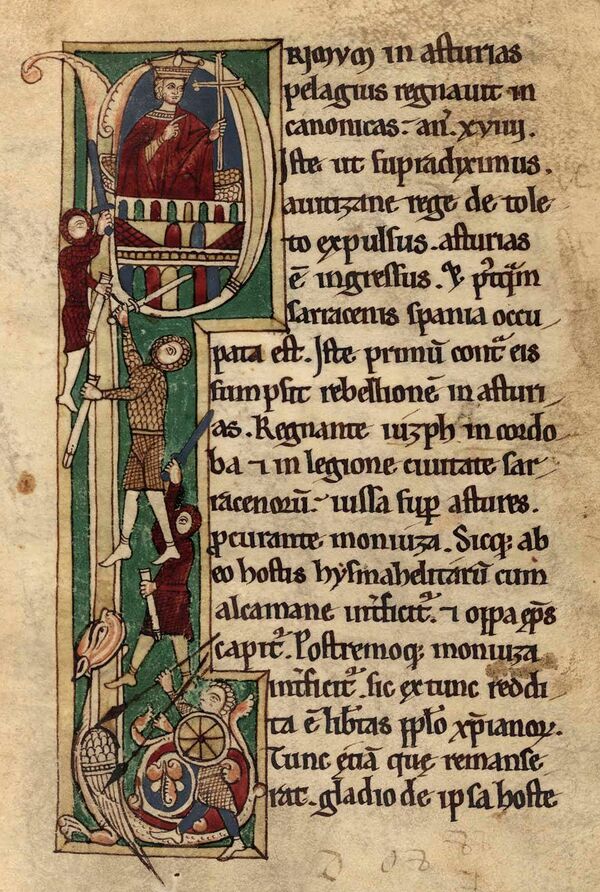 PRIMUM in asturias
pelagius regnauit in
canonicas. an̄. xviiij.
Iste ut supradiximus.
auitizane rege de tole
to expulsus. asturias
ē ingressus. & p̄tquam
sarracenis spania occu
pata est. Iste primū cont̄ eis
sumpsit rebellionē in asturi
as. Regnante iuzph in cordo
ba & in legione ciuitate sar
racenorū. iussa sup̄ astures.
ꝓcurante moniuza. Sicq; ab
eo hostis hysmahelitarū cum
alcamane int̄ficit̄. & oppa ep̄s
capit̄. Postremoq; moniuza
int̄ficit̄. sic ex tunc reddi
ta ē lib̄tas pp̄lo xp̄ianoꝝ.
Tunc etiā que remanse
rat. gladio de ipsa hoste